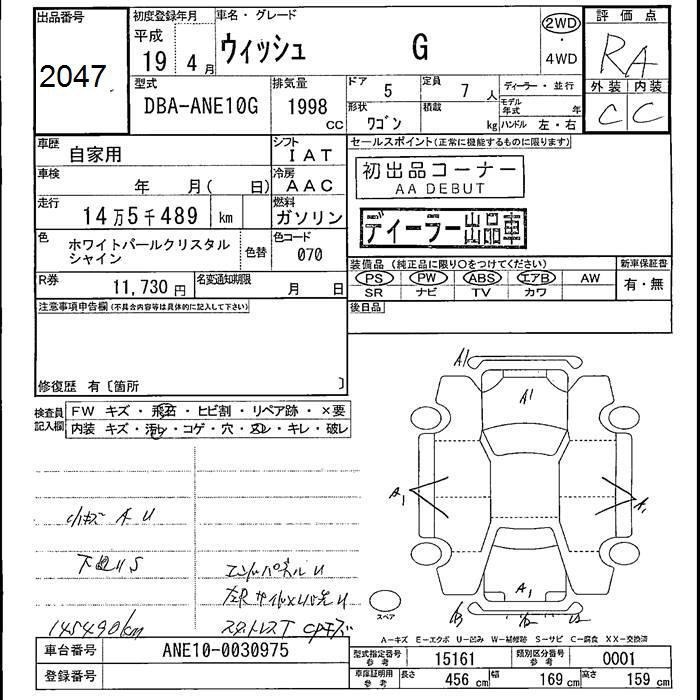 出品番号
2047
初度登録年月
平成
19 4 月
車名・グレード
ウィッシュ G
2WD
・
4WD
評価点
RA
外装 内装
C C
型式
DBA-ANE10G
排気量
1998
CC
ドア 5
定員 7 人
ディーラー・並行
モデル年式 年
形状 ワゴン
積載 kg
ハンドル 左・右
車歴 自家用
シフト IAT
車検 年 月( 日)
冷房 AAC
走行 14万5千489 km
燃料 ガソリン
色 ホワイトパールクリスタル
シャイン
色替
色コード
070
R券 11,730 円
名変通知期限 月 日
セールスポイント(正常に機能するものに限ります)
初出品コーナー
AA DEBUT
ディーラー出品車
装備品(純正品に限り○をつけてください)
新車保証書
PS PW ABS エアB AW
SR ナビ TV カワ
有・無
後日品
注意事項申告欄(不具合内容等は具体的に記入して下さい)
修復歴 有〔箇所 〕
検査員
記入欄
FW キズ・飛石・ヒビ割・リペア跡・×要
内装 キズ・汚れ・コゲ・穴・スレ・キレ・破レ
A1
A1
A1
A1
A1
小キズ A U
下廻りS
エンドパネルU
145490km
スタットレスT
スペア
A-キズ E-エクボ U-凹み W-補修跡 S-サビ C-腐食 XX-交換済
車台番号 ANE10-0030975
登録番号
型式指定番号
参考
15161
類別区分番号
参考
0001
車庫証明用
参考
長さ 456 cm 幅 169 cm 高さ 159 cm